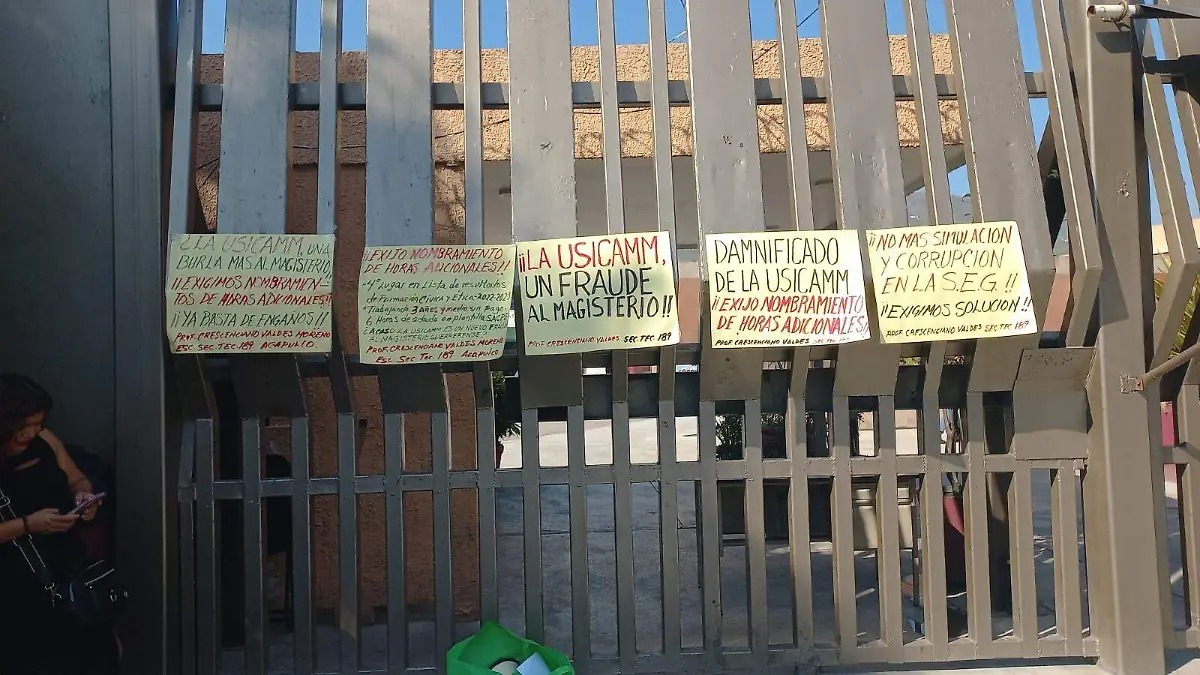 ¿LA USICAMM, UNA
BURLA MAS AL MAGISTERIO,
¡¡EXIGIMOS NOMBRAMIEN-
TOS DE HORAS ADICIONALES!!
¡¡YA BASTA DE ENGAÑOS!!
PROF. CRESCENCIANO VALDES MORENO
ESC. SEC. TEC. 189 ACAPULCO.
¡EXIJO NOMBRAMIENTO
DE HORAS ADICIONALES!!
Lugar en Lista de resultados
de Formación Cívica y Etica-2022-2023
Trabajando 3 años y medio sin pago
6 Horas de
LA USICAMM ES UN NUEVO
AL MAGISTERIO GUERRERENSE
PROF. CRESCENCIANO VALDES MORENO
ESC SEC TEC 189 ACAPULCO
¡¡LA USICAMM,
UN FRAUDE
AL MAGISTERIO!!
PROF. CRESCENCIANO VALDES SEC TEC. 189
DAMNIFICADO
DE LA USICAMM
¡¡EXIJO NOMBRAMIENTO
DE HORAS ADICIONALES!
PROF. CRESCENCIANO VALDES SEC TEC 189
¡NO MAS SIMULACION
Y CORRUPCION
EN LA S.E.G. !!
¡¡EXIGIMOS SOLUCION!!
PROF CRESCENCIANO VALDES SEC TEC 189